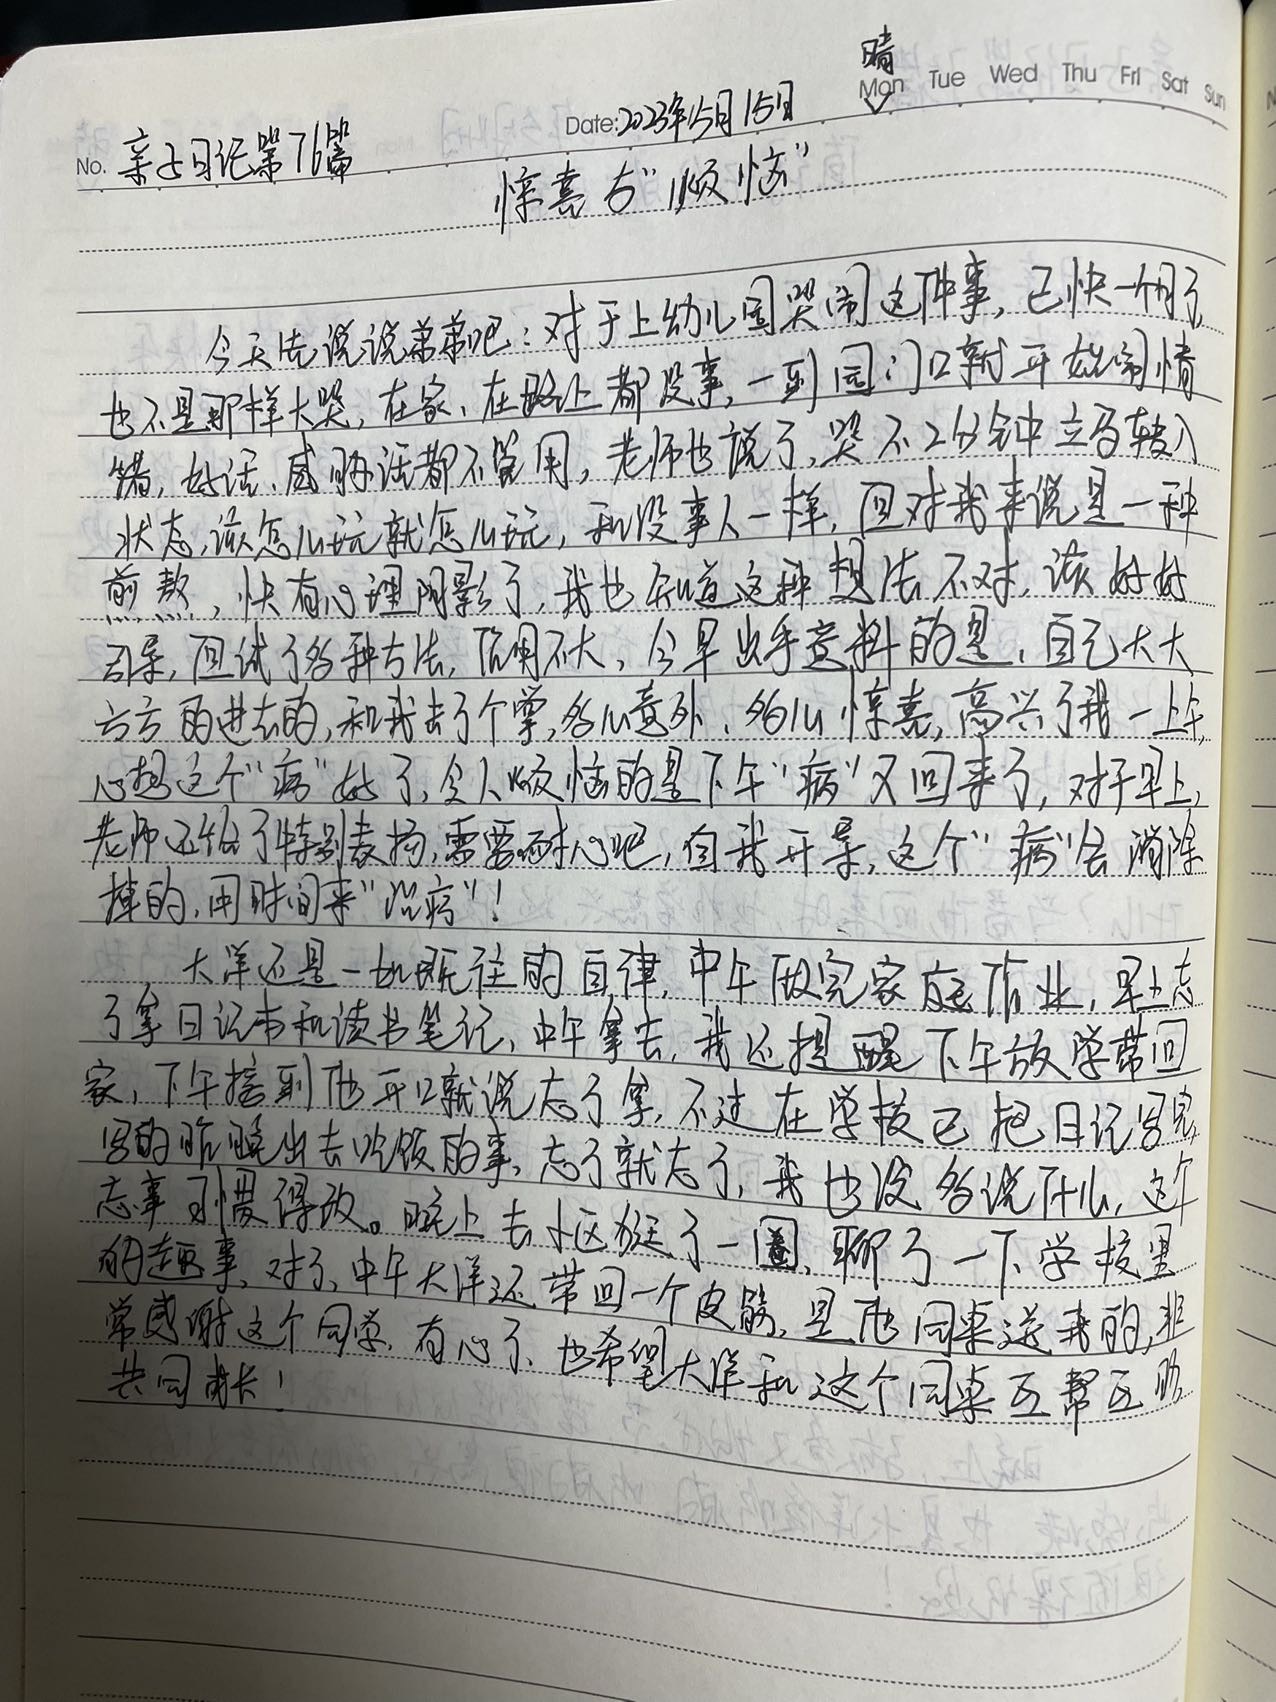 晴
Mon Tue Wed Thu Fri Sat Sun
Date:2023年5月15日
No. 亲子日记第76篇
惊喜与“烦恼”
今天先说说弟弟吧:对于上幼儿园哭闹这件事,已快一个月了,
也不是那样大哭,在家、在路上都没事,一到园门口就开始闹情
绪,好话、威胁话都不管用,老师也说了,哭不2分钟立马转入
状态,该怎么玩就怎么玩,和没事人一样,但对我来说是一种
煎熬,快有心理阴影了,我也知道这种想法不对,该好好
引导,但试了各种方法,作用不大,今早出乎意料的是,自己大大
方方的进去的,和我去了个掌,多么意外、多么惊喜,高兴了我一上午,
心想这个“病”好了,令人烦恼的是下午“病”又回来了,对于早上,
老师还给了特别表扬,需要耐心吧,自我开导,这个“病”会消除
掉的,用时间来“治病”!
大洋还是一如既往的自律,中午做完家庭作业,早上忘
了拿日记本和读书笔记,中午拿去,我还提醒下午放学带回
家,下午接到他开口就说忘了拿,不过在学校已把日记写完,
写的昨晚出去吃饭的事,忘了就忘了,我也没多说什么,这个
忘事习惯得改。晚上去小区逛了一圈,聊了一下学校里
的趣事,对了,中午大洋还带回一个皮筋,是他同桌送我的,非
常感谢这个同学,有心了、也希望大洋和这个同桌互帮互助
共同成长!